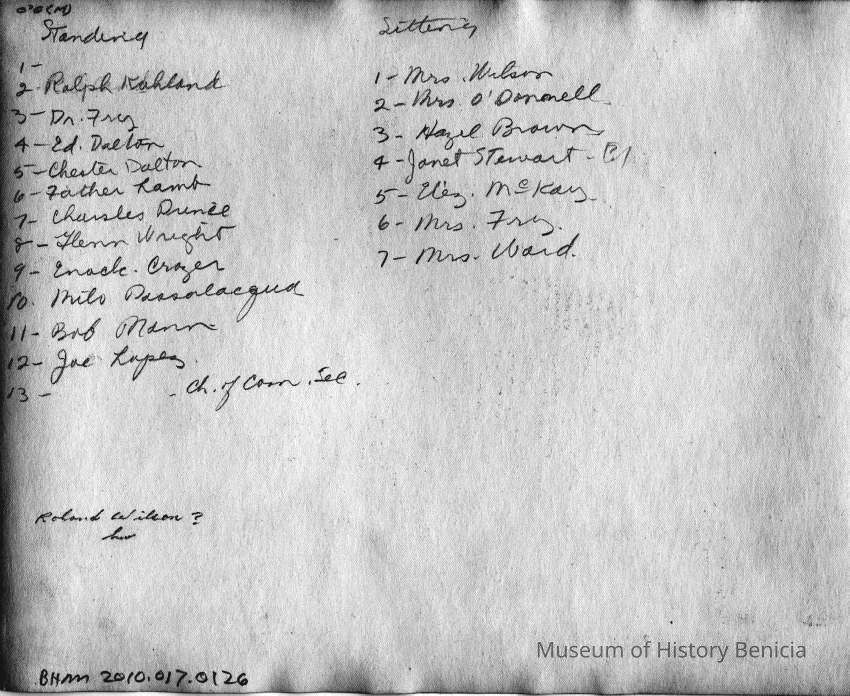 Standing
1-
2- Ralph Kohland
3- Dr. Frey
4- Ed. Dalton
5- Chester Dalton
6- Father Lamb
7- Charles Prince
8- Glenn Wright
9- Enock. Crozer
10. Milo Passalacqua
11- Bob Mann
12- Joe Lopes
13 - - Ch. of Com. Sec.
Sitting
1- Mrs. Wilson
2- Mrs. O'Donnell
3- Hazel Brown
4- Janet Stewart -
5- Eliz. McKay
6- Mrs. Frey.
7- Mrs. Ward.
Roland Wilson?
BHM 2010.017.0126
Museum of History Benicia